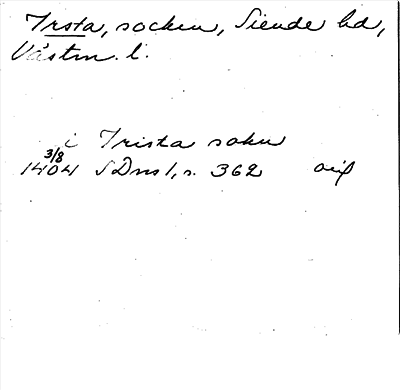 Irsta, socken, Siende hd,
Västm. l.
i Trista sokn
3/8
1404 SDns 1, s. 362 orig